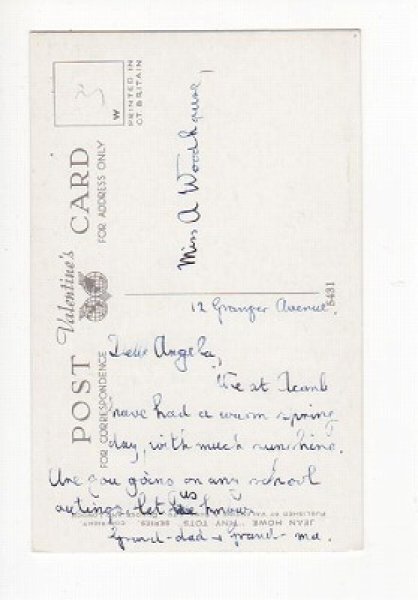 POST CARD
Valentine's
FOR CORRESPONDENCE
FOR ADDRESS ONLY
W
PRINTED IN
GT. BRITAIN
Miss A Woodhouse,
5431
12 Granger Avenue.
Angela,
We at
have had a warm spring
day, with much sunshine.
Are you going on any school
outings, let us know
Grand-dad & Grand-ma.
JEAN HOWE "TINY TOTS" SERIES COPYRIGHT
PUBLISHED BY